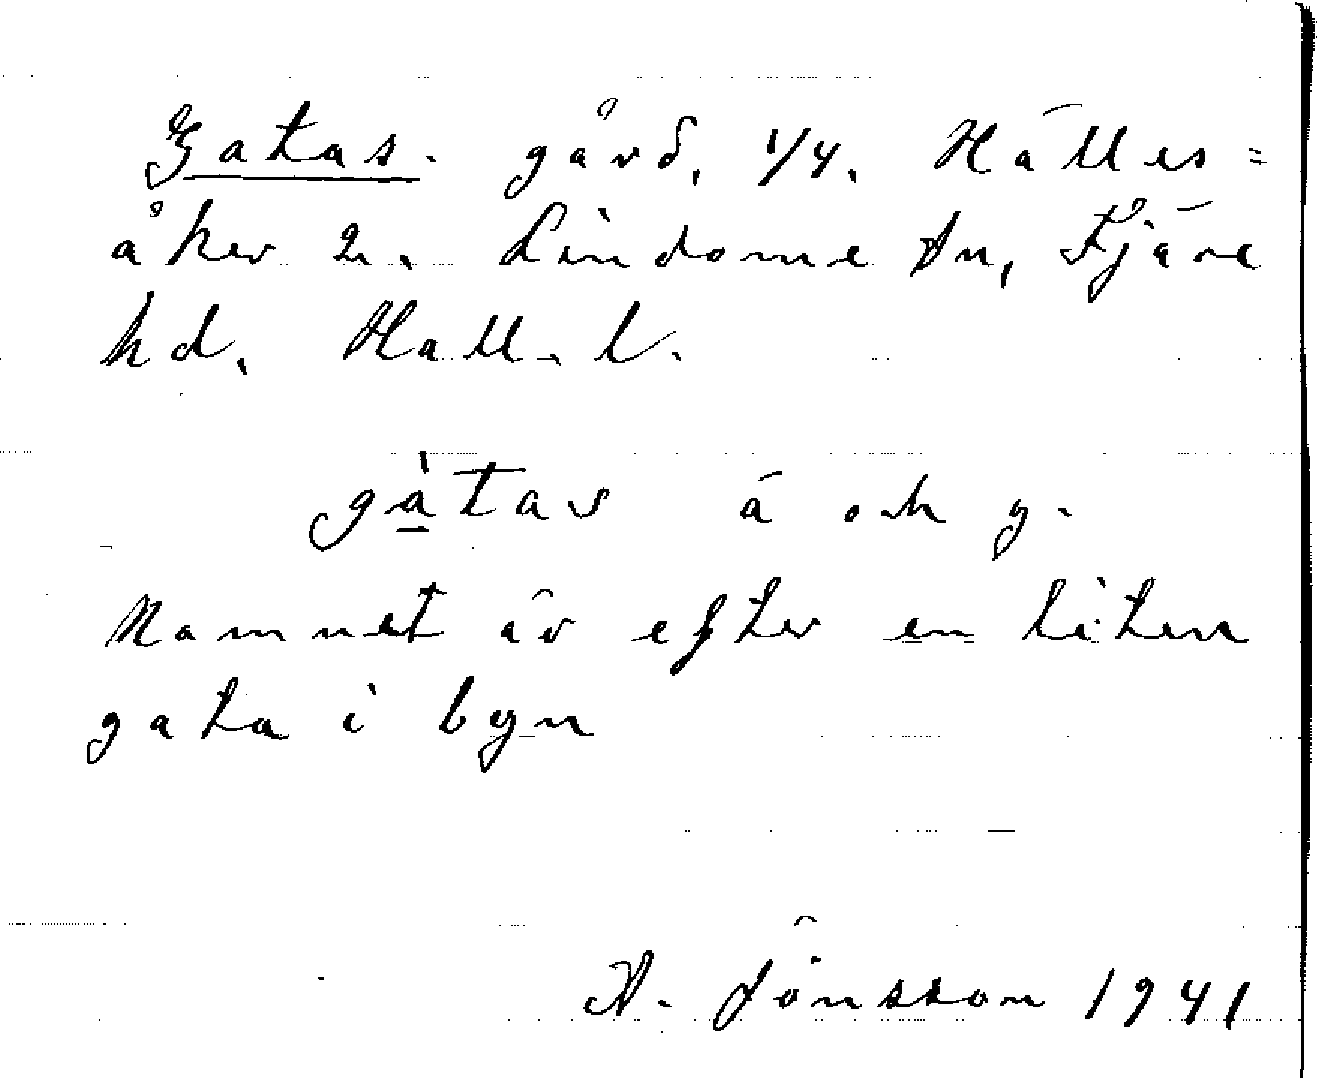 Gatas. gård, 1/4. Hälles=
åker 2. Lindome sn, Fjäre
hd, Hall. l.
gàtas á och g.
Namnet är efter en liten
gata i byn
A. Jönsson 1941